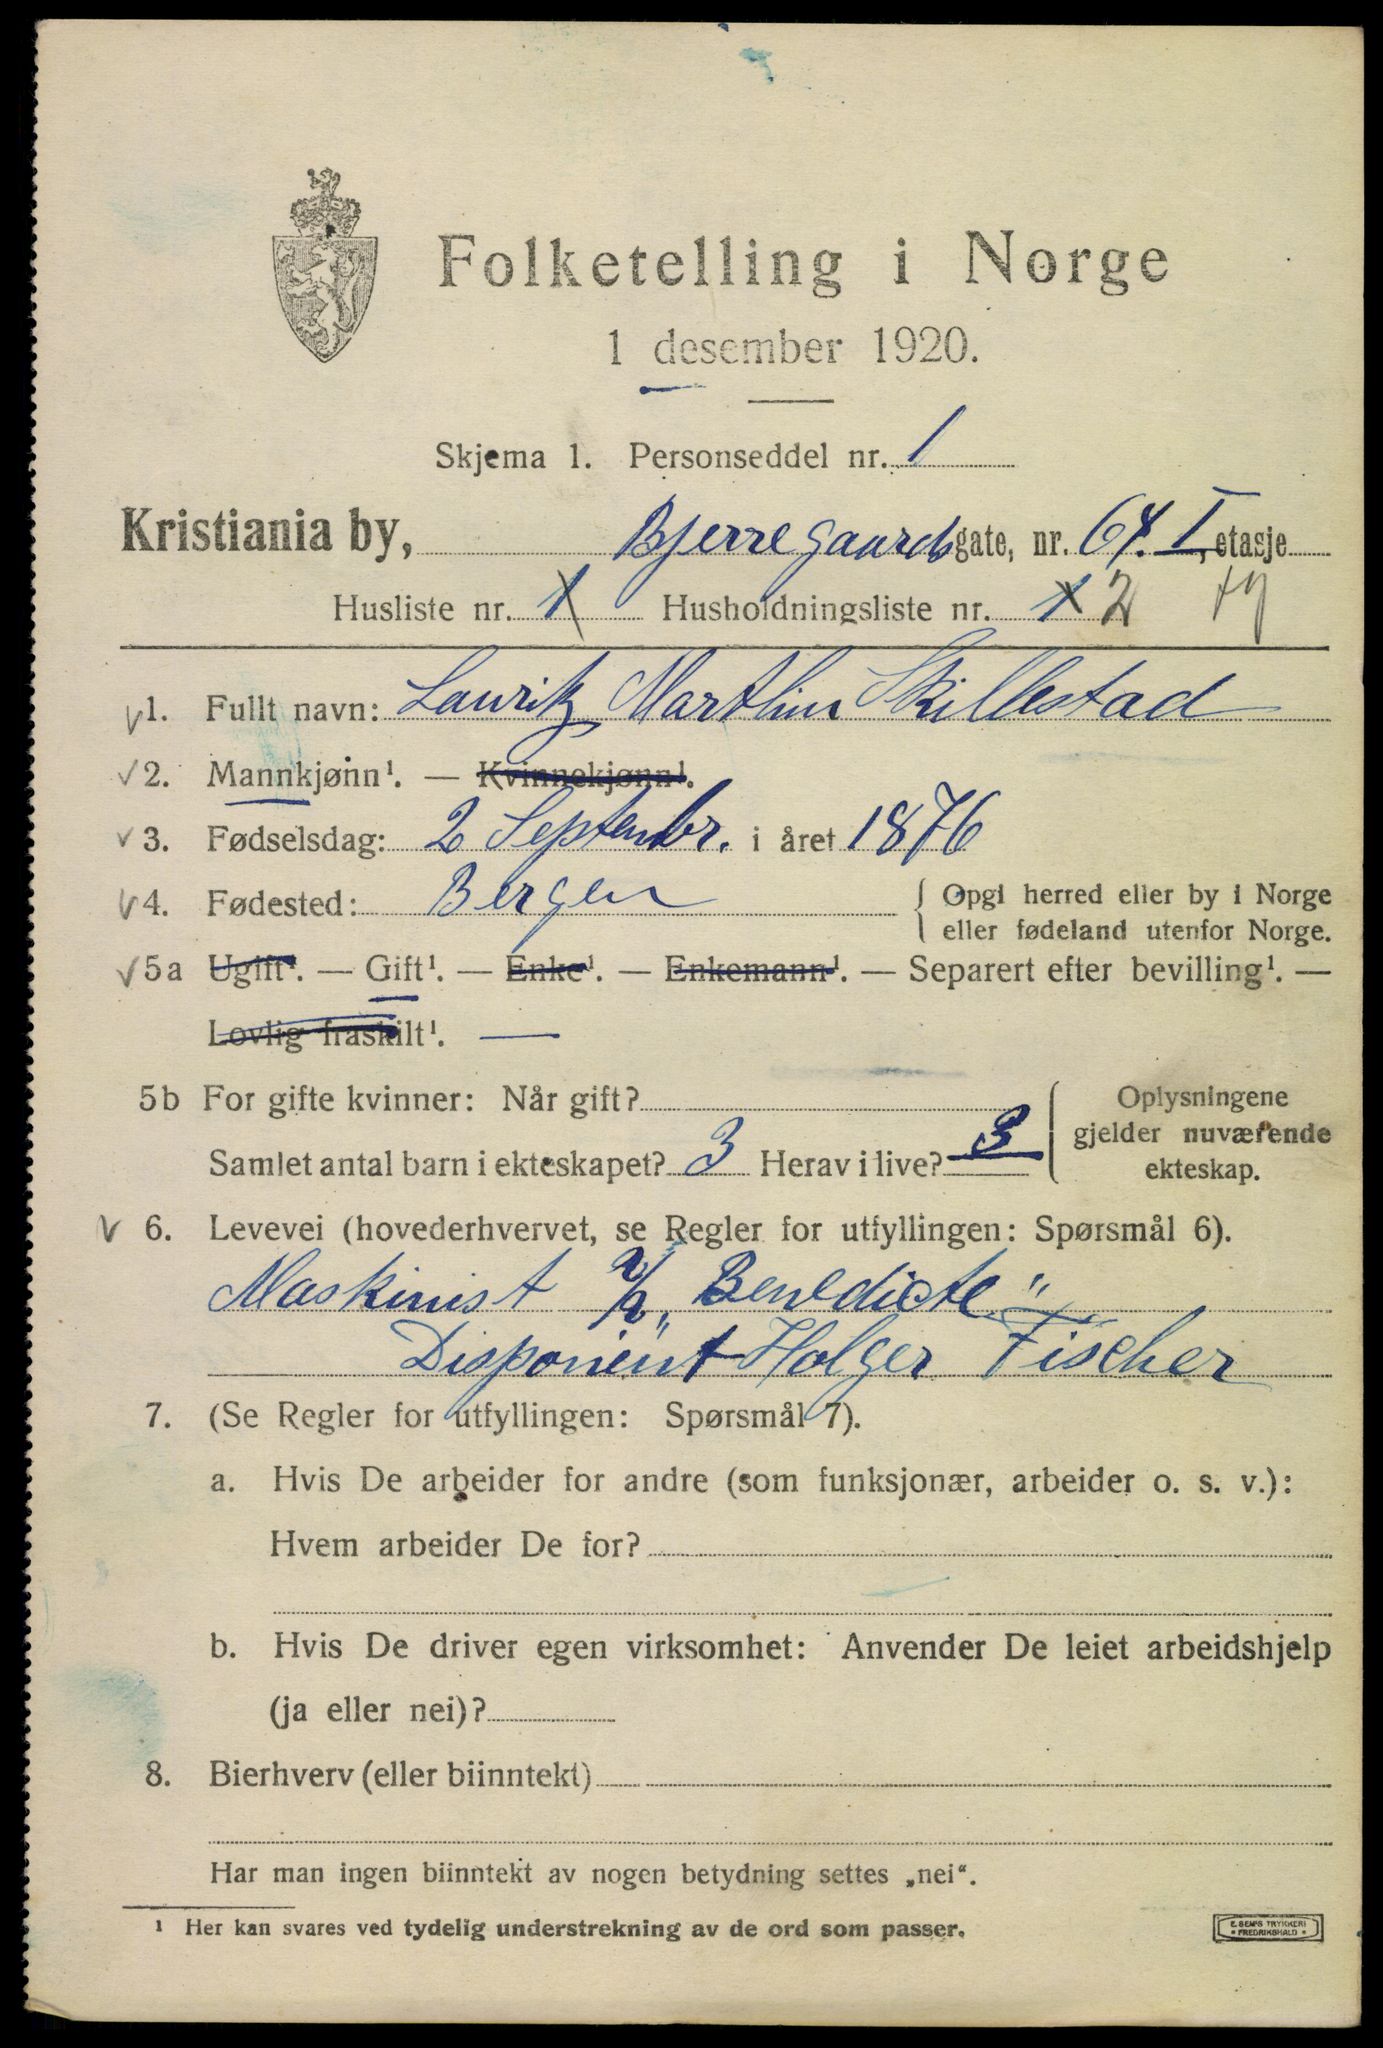 Folketelling i Norge
1 desember 1920.
Skjema 1. Personseddel nr. 1
Kristiania by, Bjerregaardsgate, nr. 64. I, etasje
Husliste nr. 1 Husholdningsliste nr. 1 2
1. Fullt navn: Lauritz Marthin Skillestad
2. Mannkjønn¹. — Kvinnekjønn¹.
3. Fødselsdag: 2 Septembr. i året 1876
4. Fødested: Bergen { Opgi herred eller by i Norge
eller fødeland utenfor Norge.
5a Ugift¹. — Gift¹. — Enke¹. — Enkemann¹. — Separert efter bevilling¹. —
Lovlig fraskilt¹. —
5b For gifte kvinner: Når gift? { Oplysningene
gjelder nuværende
Samlet antal barn i ekteskapet? 3 Herav i live? 3 ekteskap.
6. Levevei (hovederhvervet, se Regler for utfyllingen: Spørsmål 6).
Maskinist „Benedicte"
Disponent Holger Fischer
7. (Se Regler for utfyllingen: Spørsmål 7).
a. Hvis De arbeider for andre (som funksjonær, arbeider o. s. v.):
Hvem arbeider De for?
b. Hvis De driver egen virksomhet: Anvender De leiet arbeidshjelp
(ja eller nei)?
8. Bierhverv (eller biinntekt)
Har man ingen biinntekt av nogen betydning settes „nei".
¹ Her kan svares ved tydelig understrekning av de ord som passer.
E. SEMS TRYKKERI
• FREDRIKSHALD •